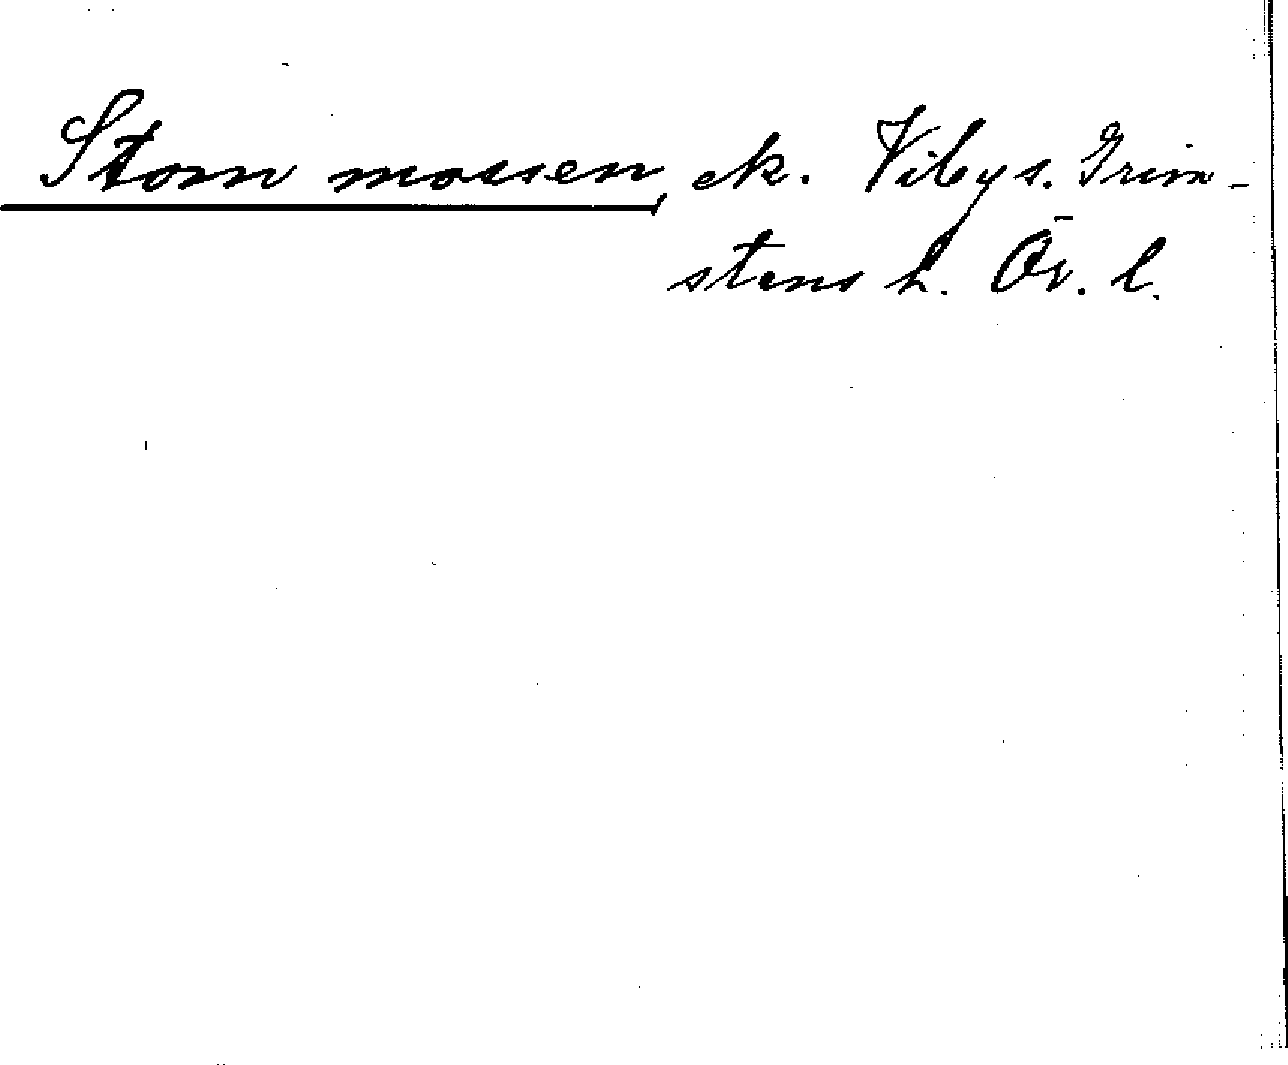 Storm mossen, ek. Viby s. Grim-
stens h. Ör. l.